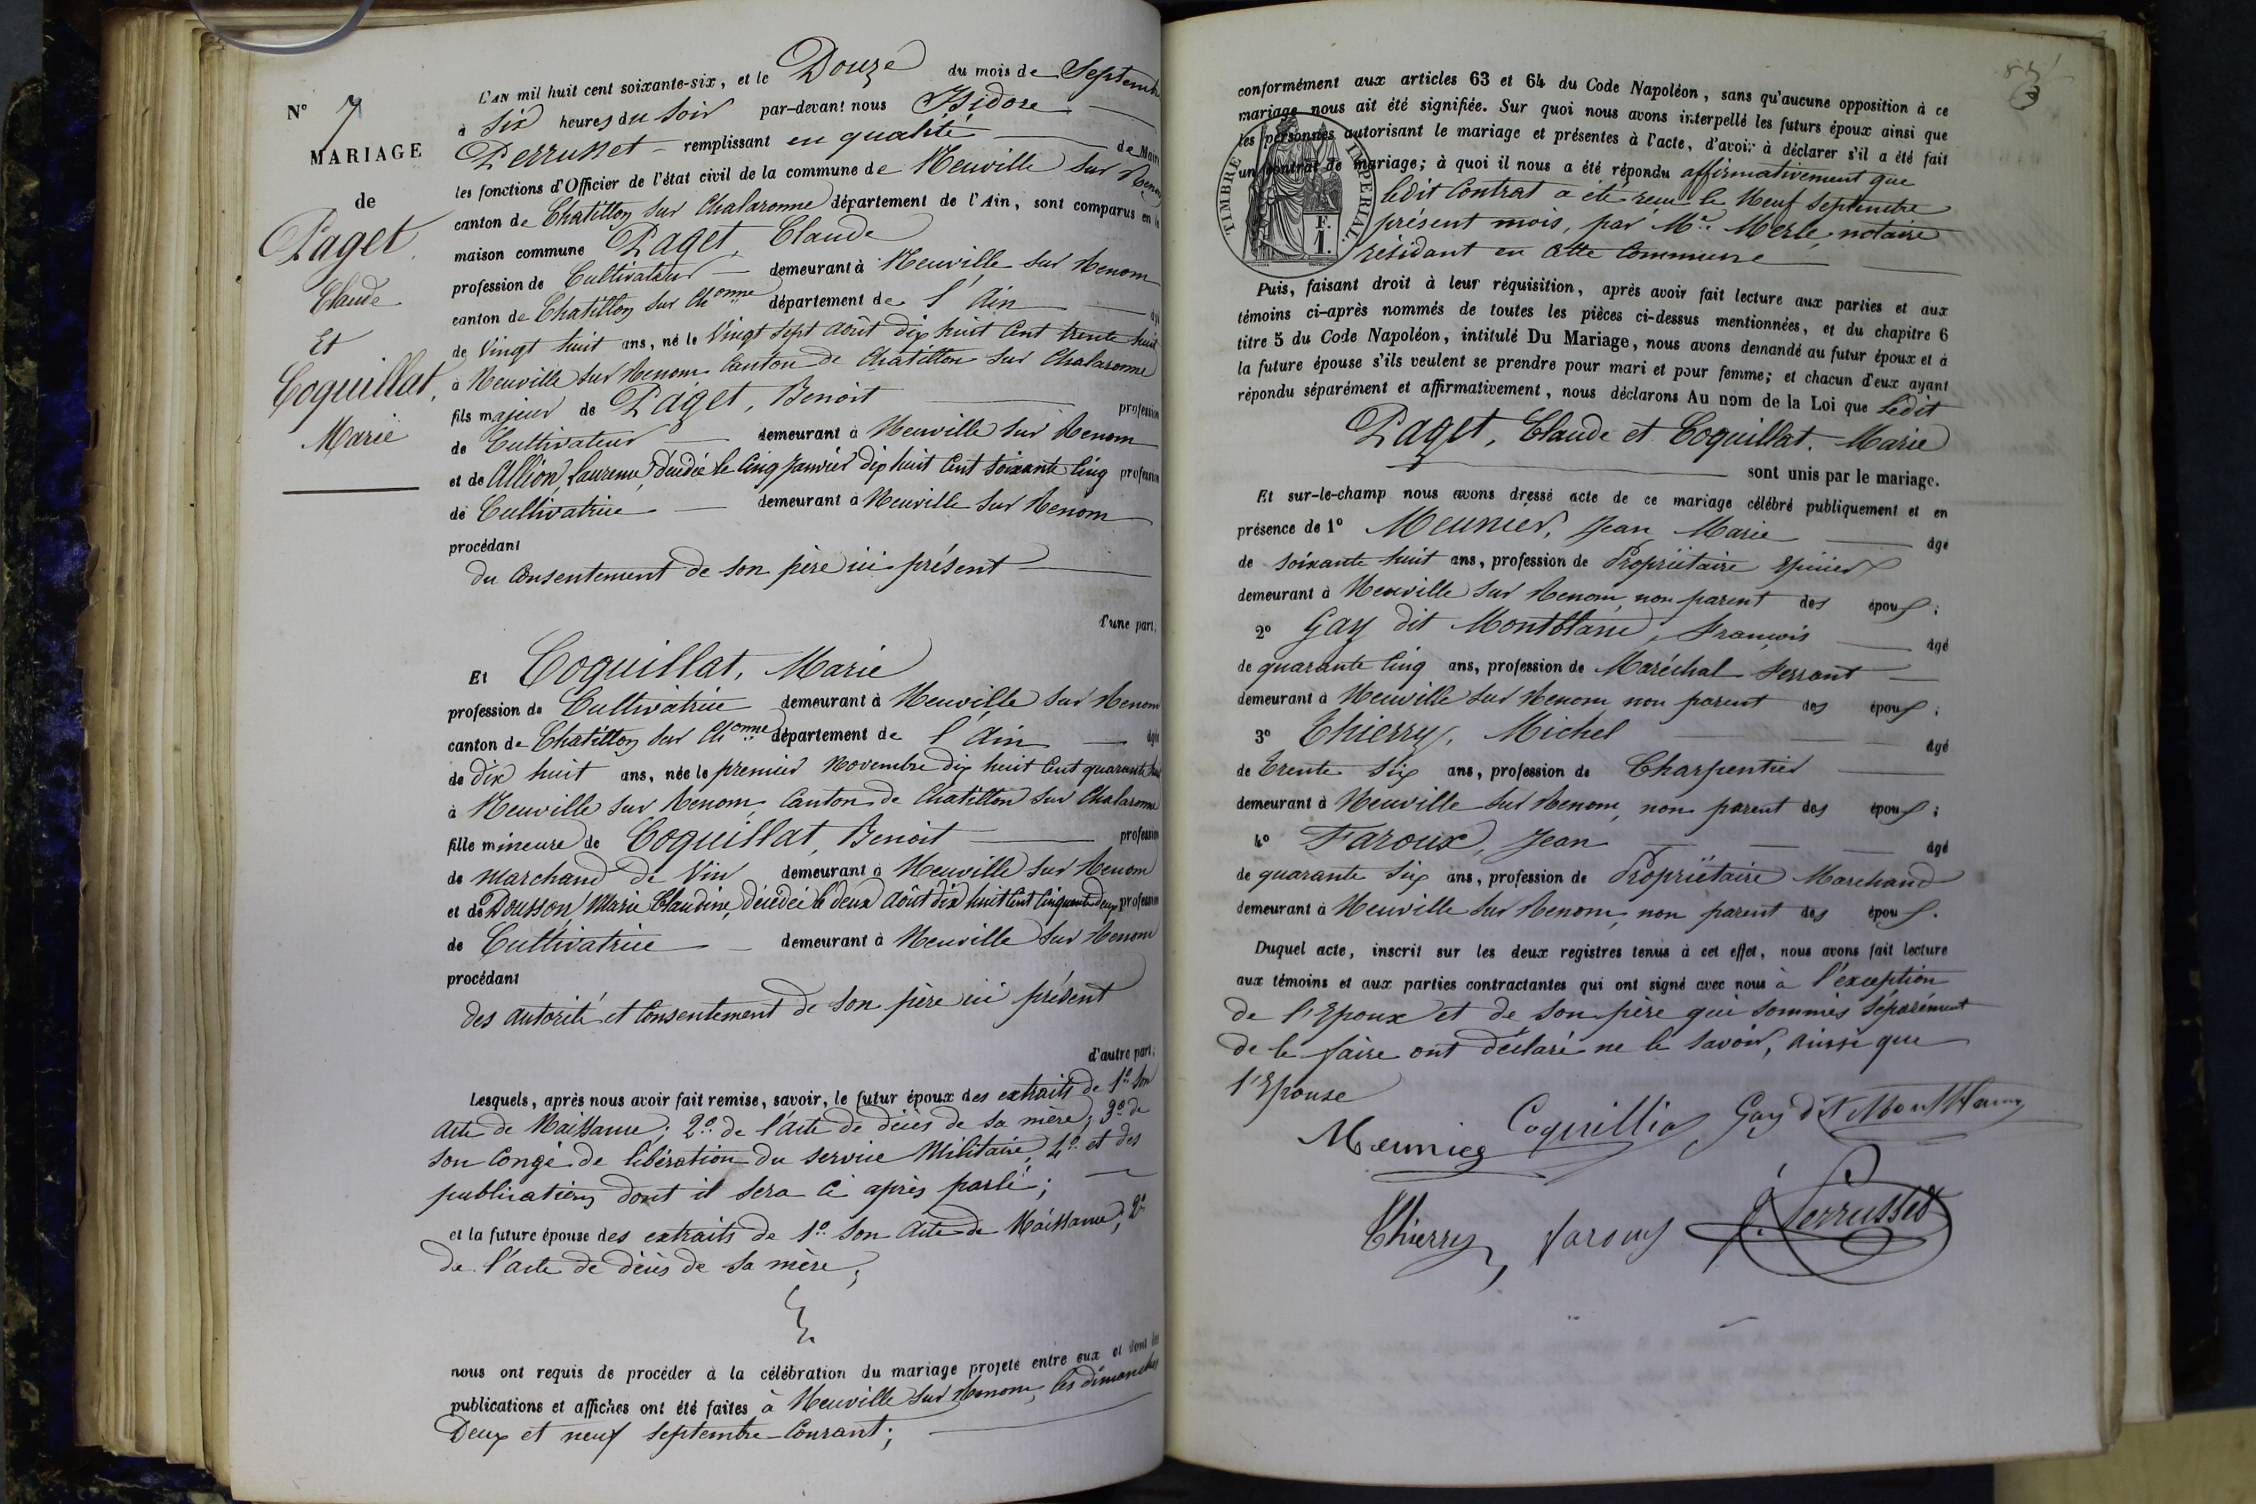 N° 7
MARIAGE
de
Paget,
Claude
Et
Coquillat,
Marie
L'AN mil huit cent soixante-six, et le Douze du mois de Septembre
à Six heures du Soir par-devant nous Isidore
Perrusset remplissant en qualité de Maire
les fonctions d'Officier de l'état civil de la commune de Neuville sur Renom
canton de Chatillon sur Chalaronne département de l'Ain, sont comparus en la
maison commune Paget, Claude
profession de Cultivateur demeurant à Neuville sur Renom
canton de Chatillon sur Ch onne département de l'Ain âgé
de Vingt huit ans, né le Vingt sept août dix huit cent trente huit
à Neuville sur Renom Canton de Chatillon sur Chalaronne
fils majeur de Paget, Benoit profession
de Cultivateur demeurant à Neuville sur Renom
et de Allion, Laurence, décédée le cinq Janvier dix huit cent soixante cinq profession
de Cultivatrice demeurant à Neuville sur Renom
procédant
du consentement de son père ici présent
d'une part;
Et Coquillat, Marie
profession de Cultivatrice demeurant à Neuville sur Renom
canton de Chatillon sur Ch onne département de l'Ain âgée
de dix huit ans, née le premier Novembre dix huit cent quarante sept
à Neuville sur Renom Canton de Chatillon sur Chalaronne
fille mineure de Coquillat, Benoit profession
de marchand de Vin demeurant à Neuville sur Renom
et de Dousson, Marie Claudine, décédée le deux Août dix huit cent cinquante deux profession
de Cultivatrice demeurant à Neuville sur Renom
procédant
des autorité et consentement de son père ici présent
d'autre part;
Lesquels, après nous avoir fait remise, savoir, le futur époux des extraits de 1° son
acte de Naissance; 2° de l'acte de décès de sa mère; 3° de
son congé de libération du service Militaire, 4° et des
publications dont il sera ci après parlé;
et la future épouse des extraits de 1° son acte de Naissance; 2°
de l'acte de décès de sa mère;
nous ont requis de procéder à la célébration du mariage projeté entre eux et dont les
publications et affiches ont été faites à Neuville sur Renom, les dimanches
Deux et neuf septembre courant;
conformément aux articles 63 et 64 du Code Napoléon, sans qu'aucune opposition à ce
mariage nous ait été signifiée. Sur quoi nous avons interpellé les futurs époux ainsi que
les personnes autorisant le mariage et présentes à l'acte, d'avoir à déclarer s'il a été fait
un contrat de mariage; à quoi il nous a été répondu affirmativement que
TIMBRE IMPERIAL
F.
1.
ledit Contrat a été reçu le Neuf Septembre
présent mois, par Me Merle, notaire
résidant en cette Commune
Puis, faisant droit à leur réquisition, après avoir fait lecture aux parties et aux
témoins ci-après nommés de toutes les pièces ci-dessus mentionnées, et du chapitre 6
titre 5 du Code Napoléon, intitulé Du Mariage, nous avons demandé au futur époux et à
la future épouse s'ils veulent se prendre pour mari et pour femme; et chacun d'eux ayant
répondu séparément et affirmativement, nous déclarons Au nom de la Loi que Ledit
Paget, Claude et Coquillat, Marie
sont unis par le mariage.
Et sur-le-champ nous avons dressé acte de ce mariage célébré publiquement et en
présence de 1° Meunier, Jean Marie âgé
de soixante huit ans, profession de Propriétaire Epicier
demeurant à Neuville sur Renom, non parent des époux;
2° Gay dit Montblanc, François âgé
de quarante cinq ans, profession de Maréchal ferrant
demeurant à Neuville sur Renom, non parent des époux;
3° Thierry, Michel âgé
de Trente Six ans, profession de Charpentier
demeurant à Neuville sur Renom, non parent des époux;
4° Faroux, Jean âgé
de quarante Six ans, profession de Propriétaire Marchand
demeurant à Neuville sur Renom, non parent des époux.
Duquel acte, inscrit sur les deux registres tenus à cet effet, nous avons fait lecture
aux témoins et aux parties contractantes qui ont signé avec nous à l'exception
de l'Epoux et de son père qui sommés séparément
de le faire ont déclaré ne le savoir, ainsi que
l'Epouse
Meunier Coquillia Gay dit Montblanc
Thierry Faroux I. Perrusset